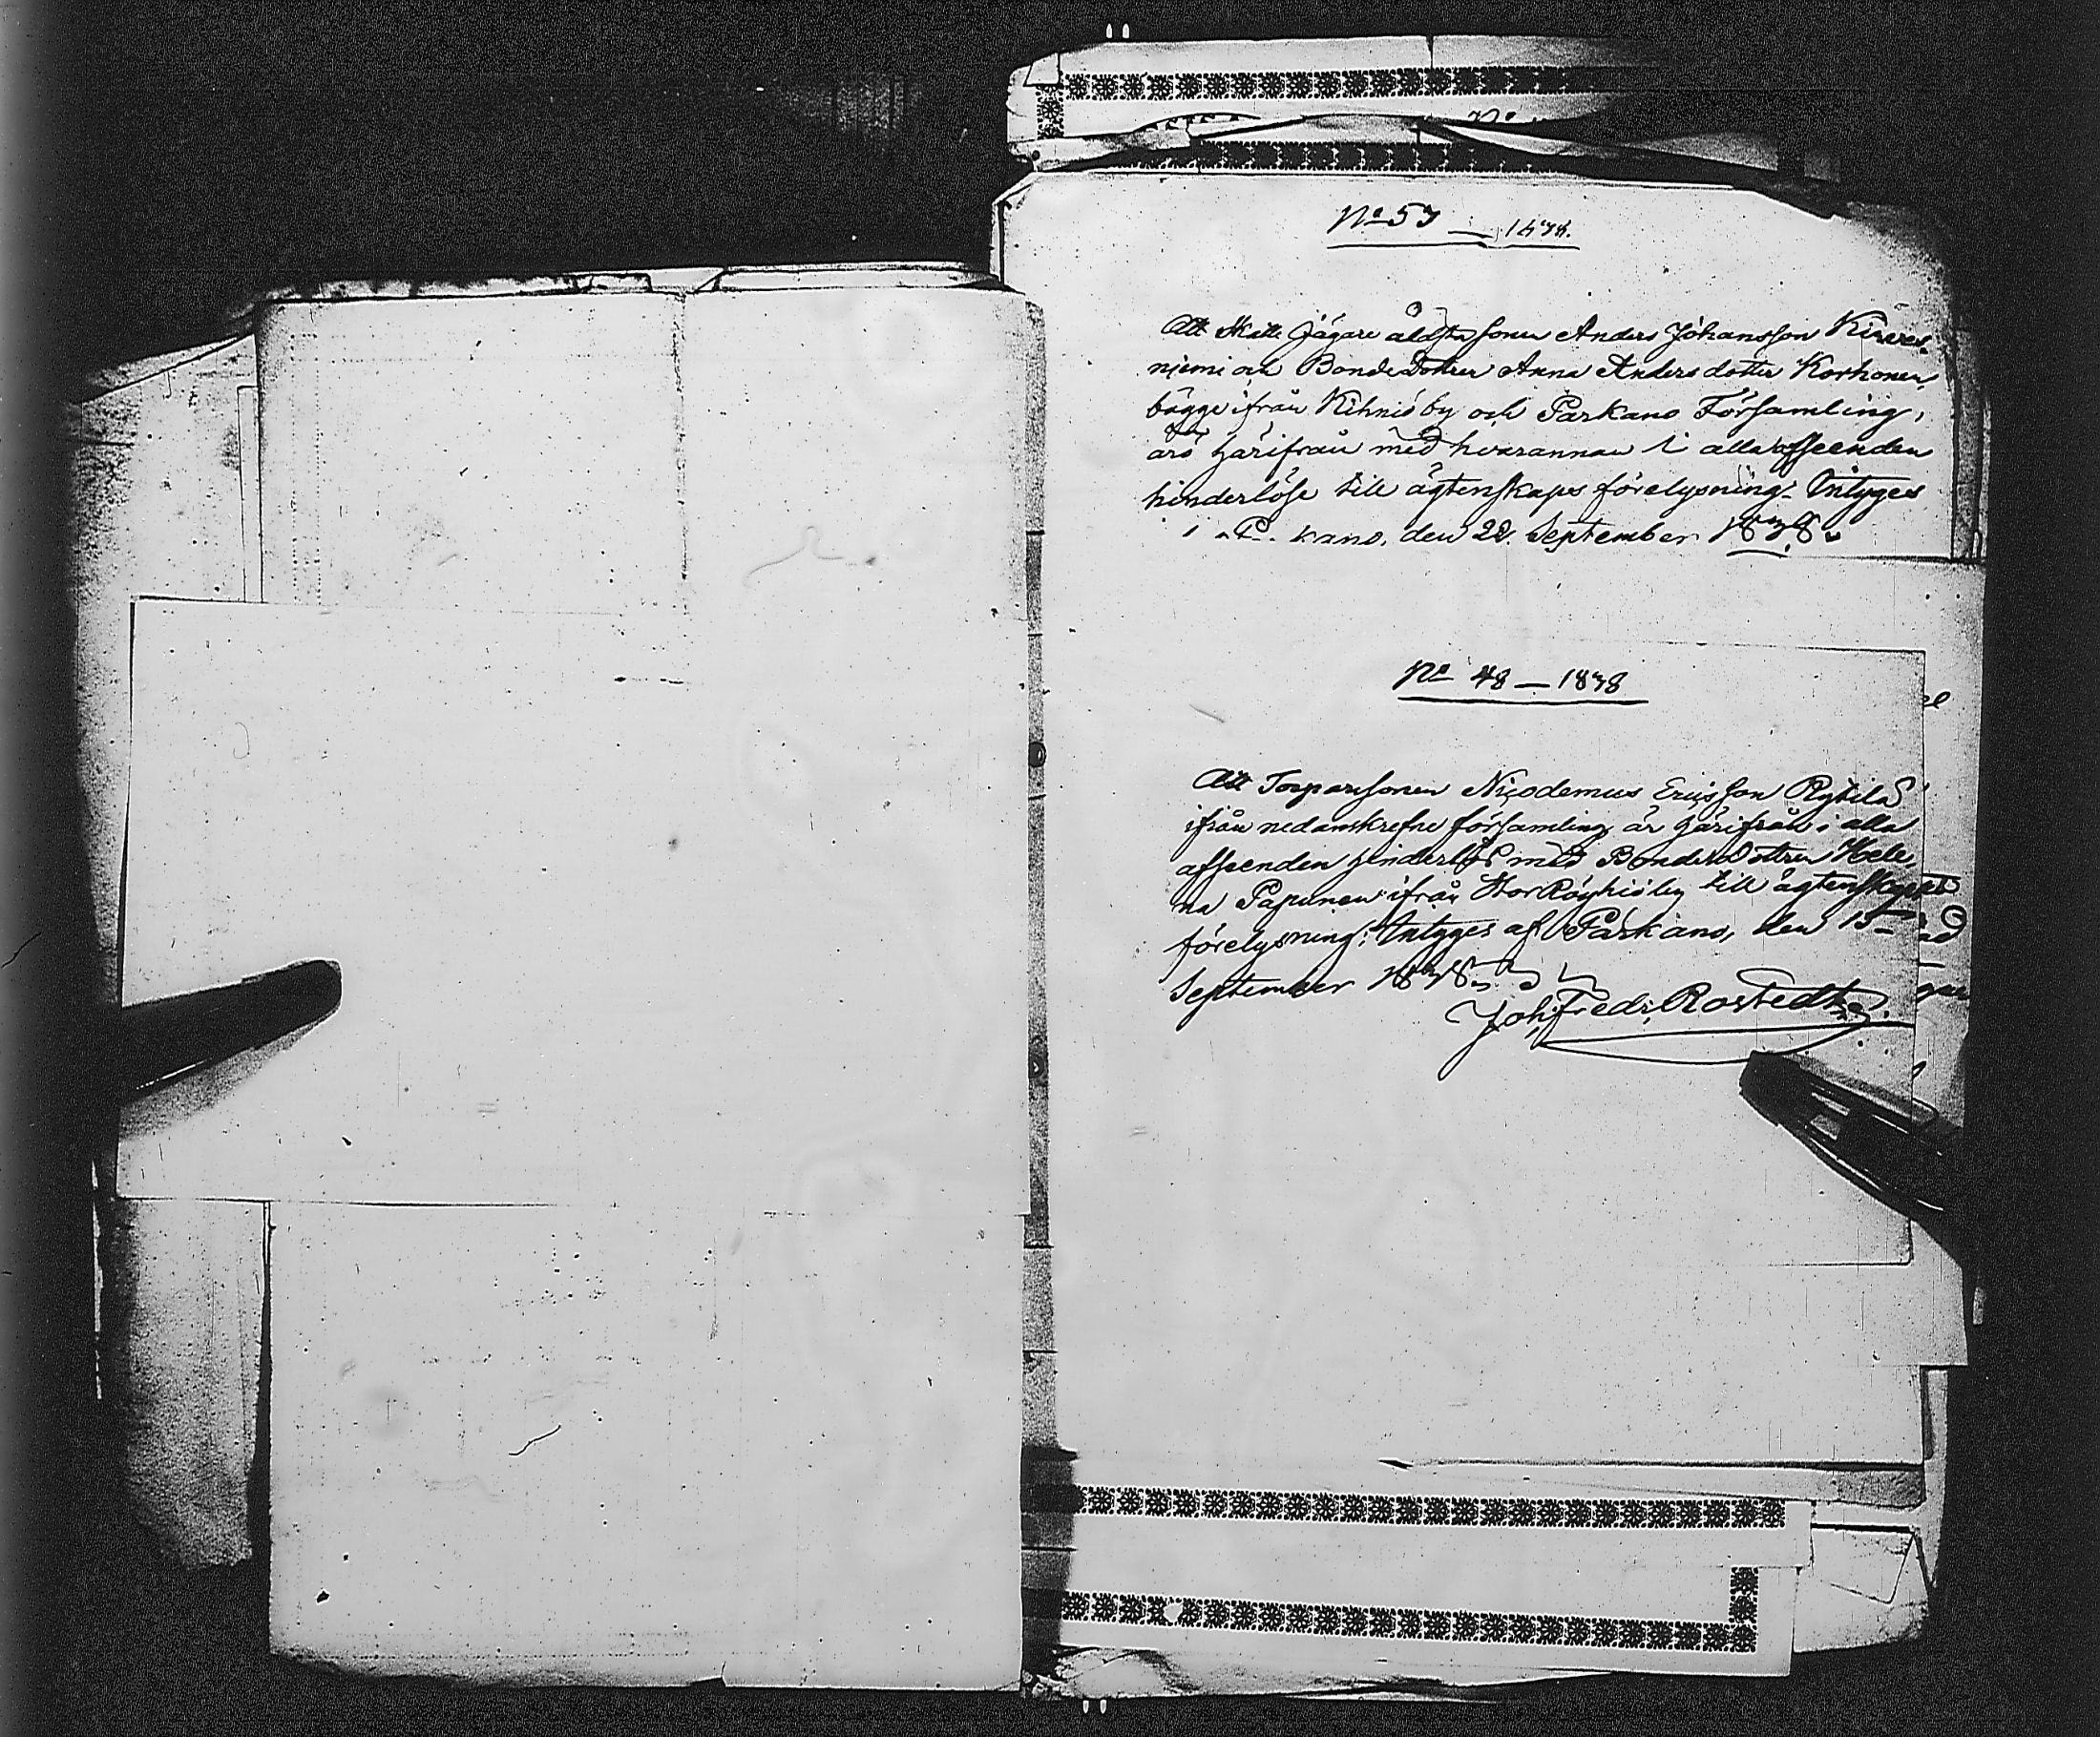 No 57 — 1878.
Att Skatte Jägare äldsta sonen Anders Johansson Kirves-
niemi och Bondedottren Anna Andersdotter Korhonen,
bägge ifrån Kihniö by och Parkano Församling,
äro härifrån med hvarannan i alla afseenden
hinderlöse till ägtenskaps förelysning. Intyges
i P. kano, den 22. September 1878.
No 48 — 1878
Att Torparsonen Nicodemus Ericsson Rytilä
ifrån nedanskrefne församling är härifrån i alla
afseenden hinderlös med Bondedottren Hele-
na Papunen ifrån Stor Röyhiö by till ägtenskaps
förelysning; Intyges af Parkano, den 15
September 1878.
Joh. Fredr. Rostedt